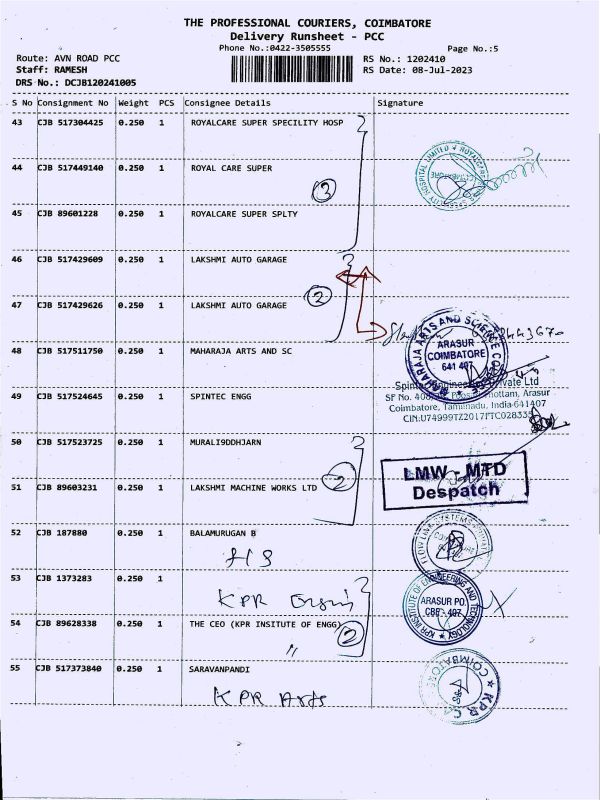 THE PROFESSIONAL COURIERS, COIMBATORE
Delivery Runsheet - PCC
Phone No.:0422-3505555 Page No.:5
Route: AVN ROAD PCC RS No.: 1202410
Staff: RAMESH RS Date: 08-Jul-2023
DRS No.: DCJB120241005
S No Consignment No Weight PCS Consignee Details Signature
43 CJB 517304425 0.250 1 ROYALCARE SUPER SPECILITY HOSP
44 CJB 517449140 0.250 1 ROYAL CARE SUPER
3
45 CJB 89601228 0.250 1 ROYALCARE SUPER SPLTY
46 CJB 517429609 0.250 1 LAKSHMI AUTO GARAGE
2
47 CJB 517429626 0.250 1 LAKSHMI AUTO GARAGE
48 CJB 517511750 0.250 1 MAHARAJA ARTS AND SC
MAHARAJA ARTS AND SCIENCE
ARASUR
COIMBATORE
641 407
49 CJB 517524645 0.250 1 SPINTEC ENGG
Private Ltd
SF No. Thottam, Arasur
Coimbatore, Tamilnadu, India-641407
CIN:U74999TZ2017PTC028335
50 CJB 517523725 0.250 1 MURALI9DDHJARN
2
51 CJB 89603231 0.250 1 LAKSHMI MACHINE WORKS LTD
LMW - MTD
Despatch
52 CJB 187880 0.250 1 BALAMURUGAN B
FLOW LINK SYSTEMS
53 CJB 1373283 0.250 1
KPR
KPR INSTITUTE OF ENGINEERING AND TECHNOLOGY
ARASUR PO,
CBE - 407
54 CJB 89628338 0.250 1 THE CEO (KPR INSITUTE OF ENGG)
2
"
55 CJB 517373840 0.250 1 SARAVANPANDI
KPR Arts